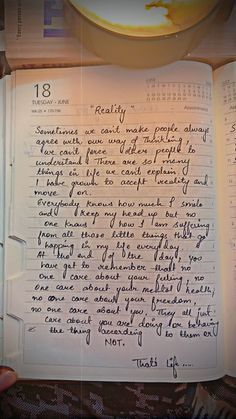 18
TUESDAY - JUNE
"Reality"
Sometimes we can't make people always
agree with our way of thinking,
we can't force others people to
understand. There are so many
things in life we can't explain.
I have grown to accept reality and
move on.
Everybody knows how much I smile
and I keep my head up but no
one know's how I am suffering
from all those little things that go
happing in my life every day.
At the end of the day, you
have got to remember that no
one care about your feeling, no
one care about your mental health,
no one care about your freedom,
no one care about you. They all just
care about you are doing or behaving
the thing according to them or
NOT.
That's Life ....